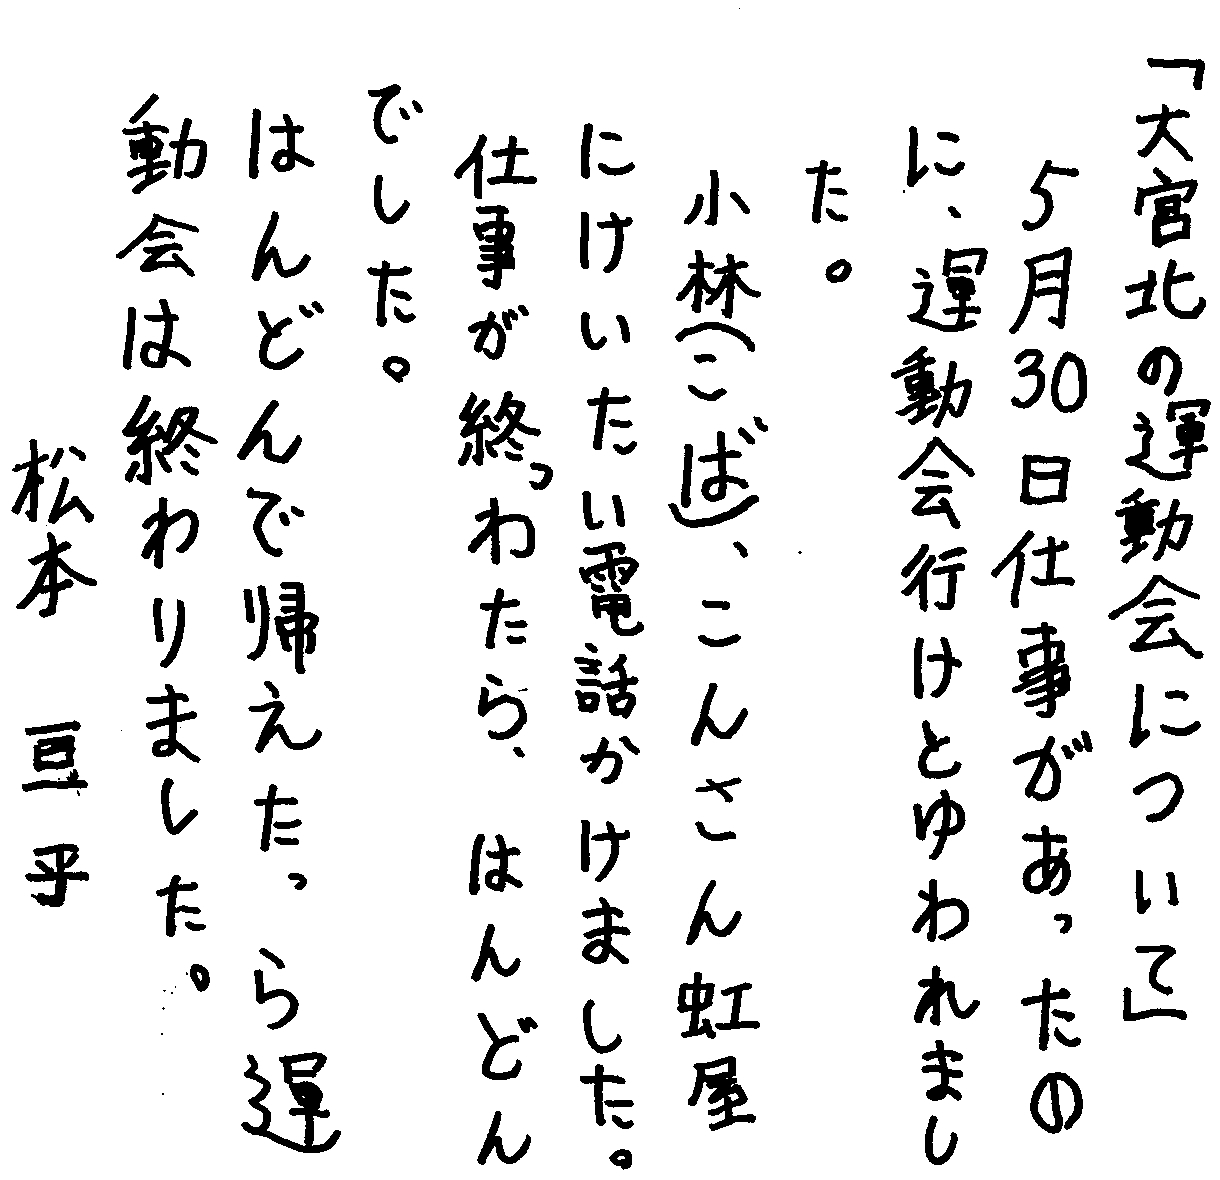 「大宮北の運動会について」
5月30日仕事があったの
に、運動会行けとゆわれまし
た。
小林(こば)、こんさん虹屋
にけいたい電話かけました。
仕事が終っわたら、はんどん
でした。
はんどんで帰えたっら運
動会は終わりました。
松本 豆乎